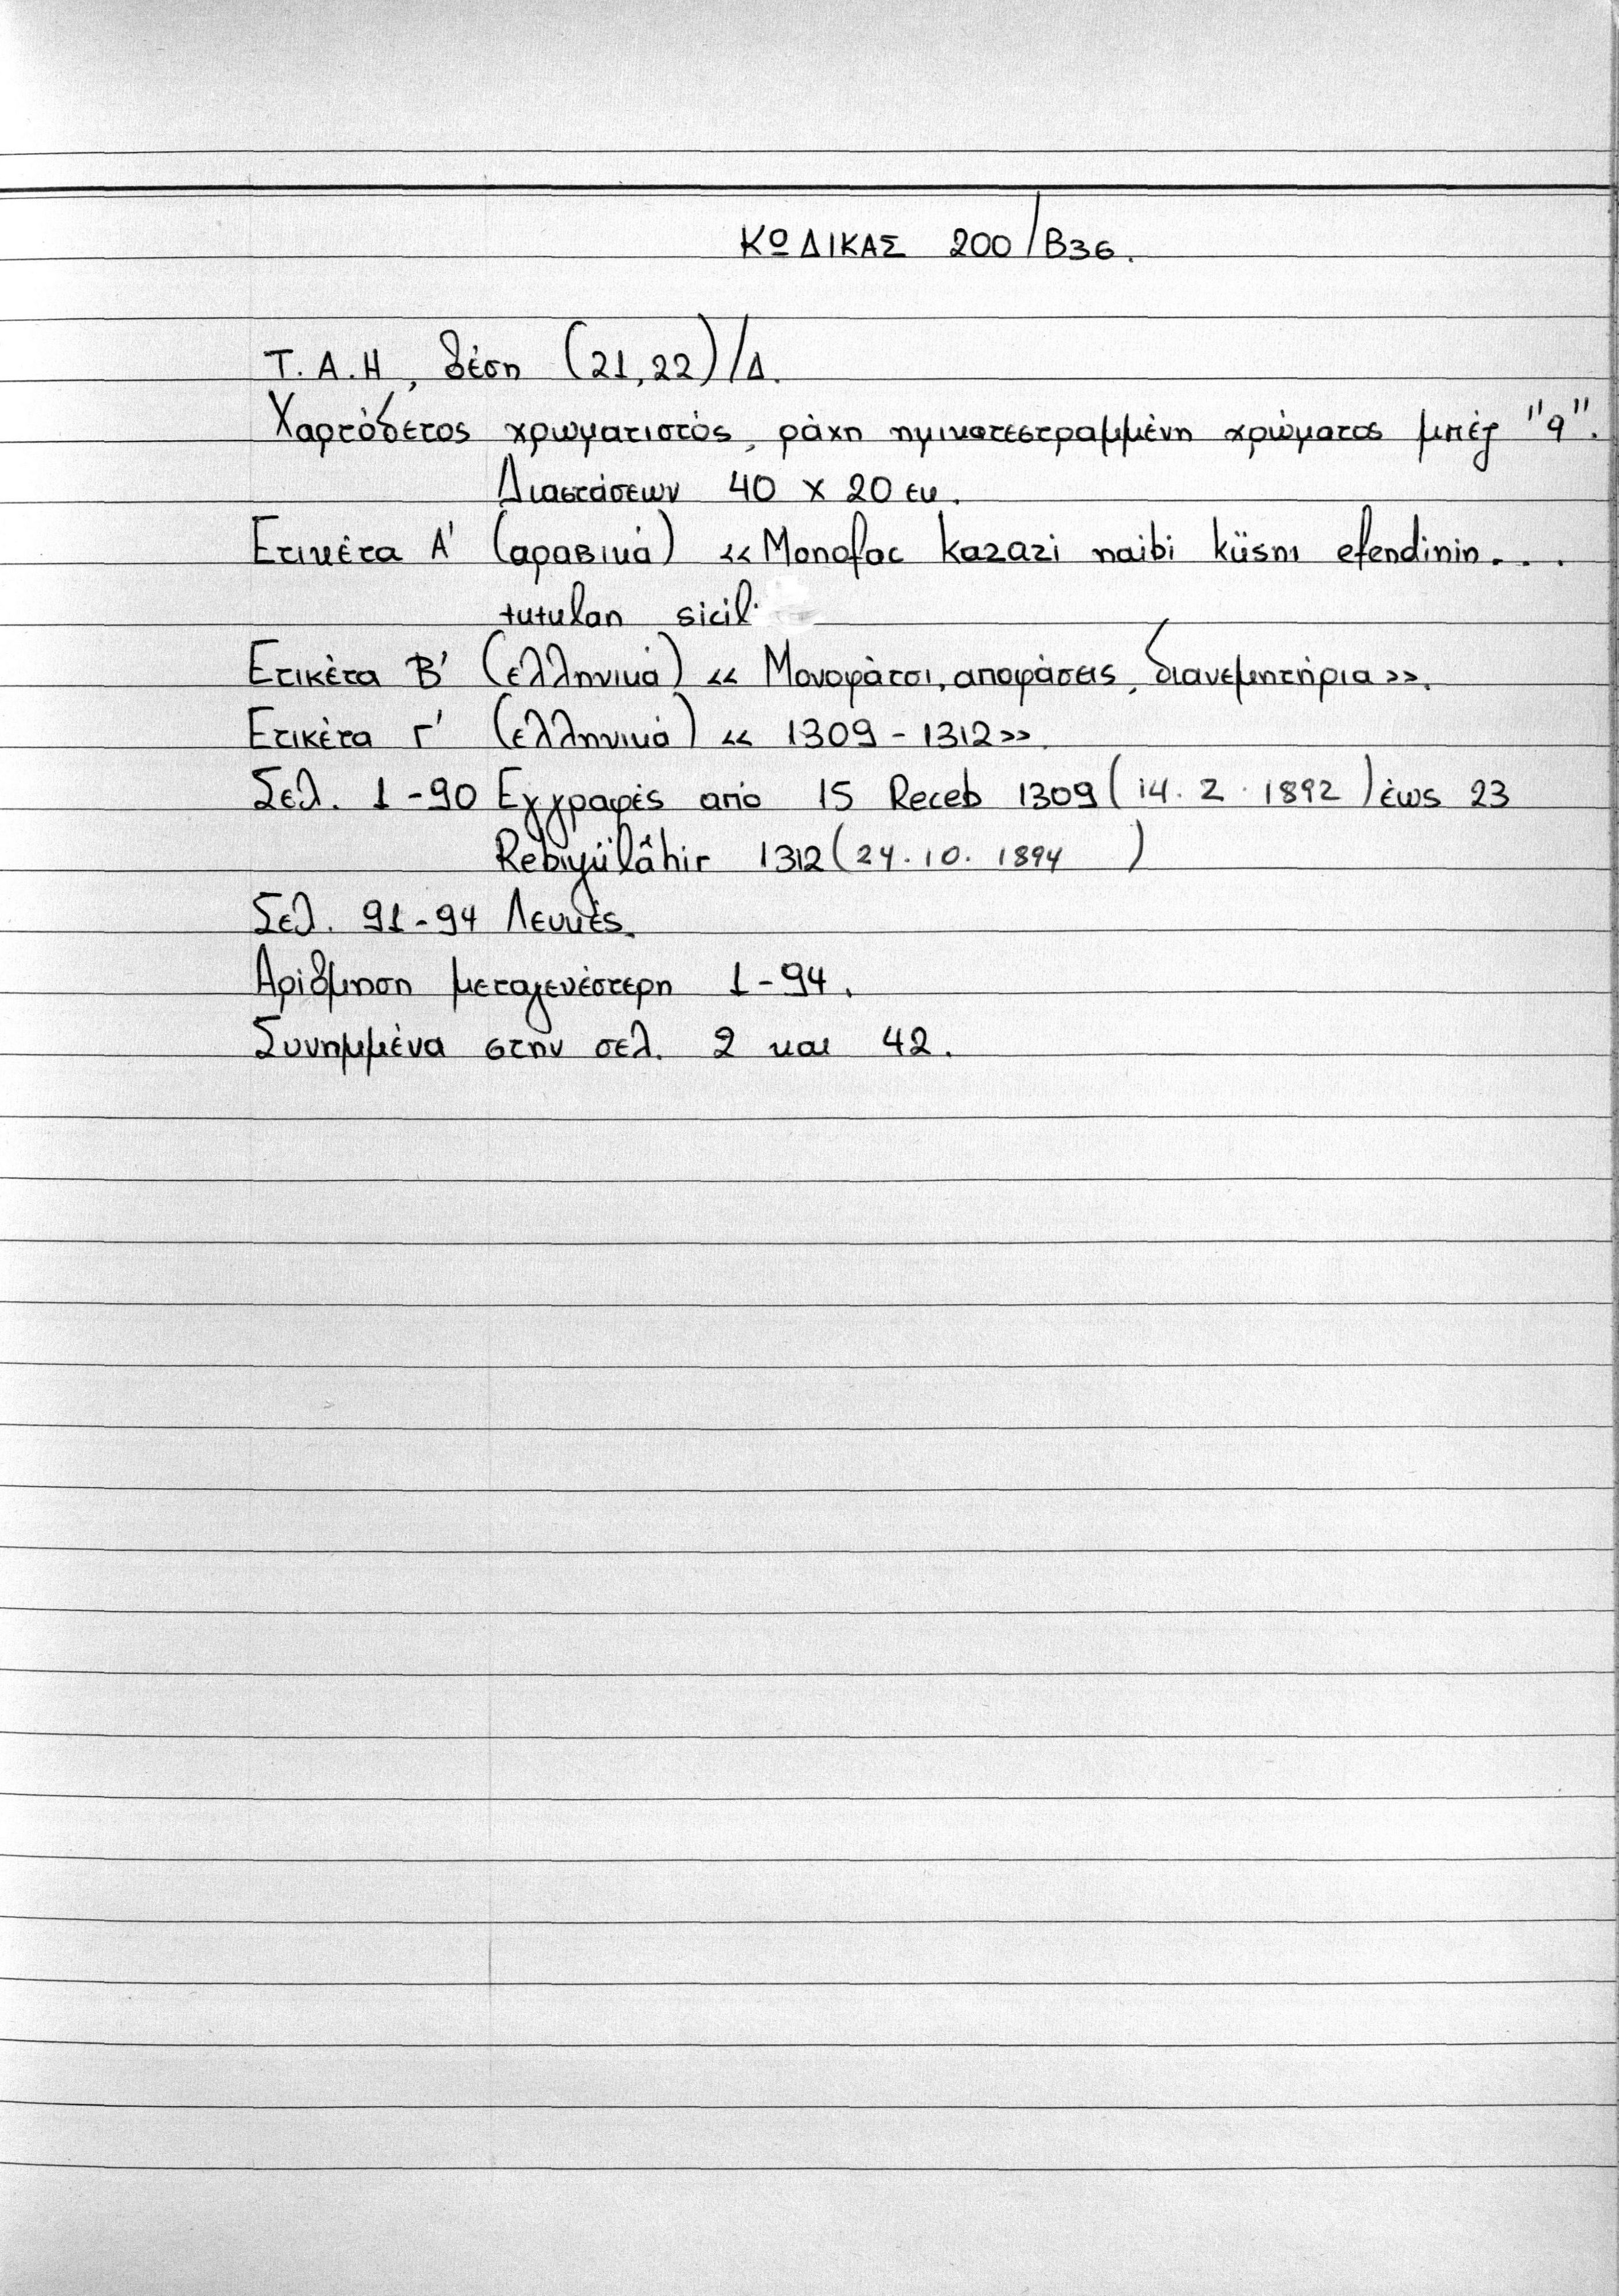 ΚΩΔΙΚΑΣ 200/Β36.
Τ.Α.Η, θέση (21,22)/Δ.
Χαρτόδετος χρωματιστός, ράχη ημικατεστραμμένη χρώματος μπέζ "9".
Διαστάσεων 40 x 20 εκ.
Ετικέτα Α' (αραβικά) «Monofac kazazi naibi küsnı efendinin...
tutulan sicil
Ετικέτα Β' (ελληνικά) « Μονοφάτσι, αποφάσεις, διανεμητήρια».
Ετικέτα Γ' (ελληνικά) « 1309 - 1312».
Σελ. 1-90 Εγγραφές από 15 Receb 1309 (14.2.1892) έως 23
Rebiyülâhir 1312 (24.10.1894)
Σελ. 91-94 Λευκές.
Αρίθμηση μεταγενέστερη 1-94.
Συνημμένα στην σελ. 2 και 42.